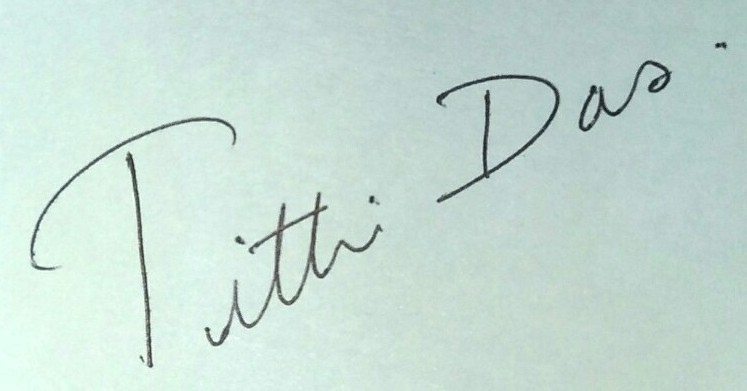 Tithi Das.